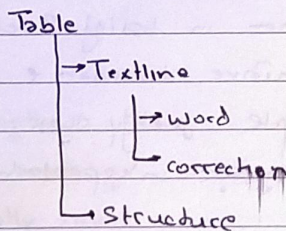 Table
→ Textline
→ word
correction
→ Structure